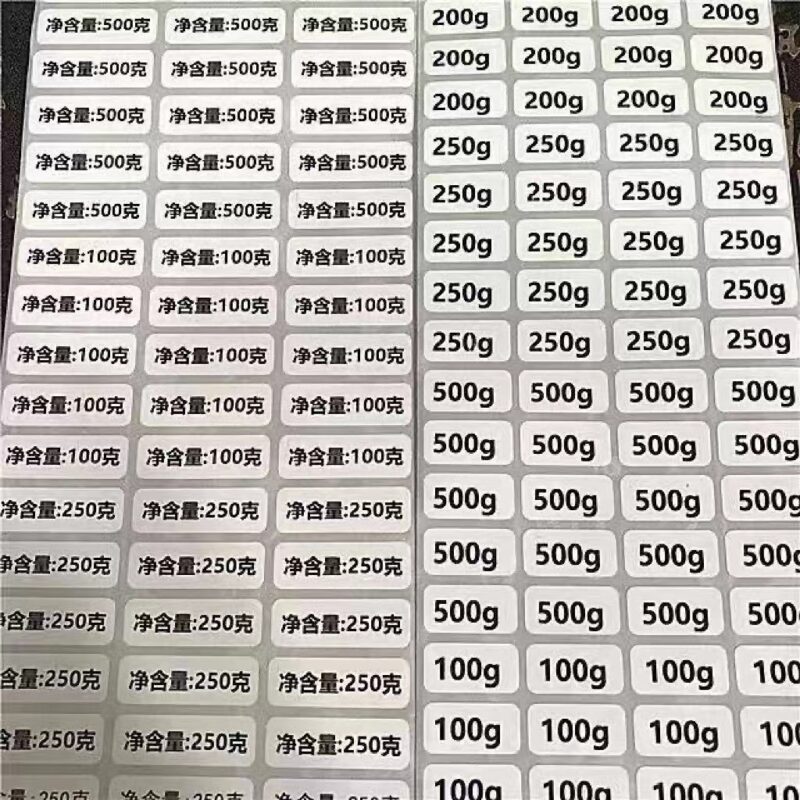 净含量:500克 净含量:500克 净含量:500克
净含量:500克 净含量:500克 净含量:500克
净含量:500克 净含量:500克 净含量:500克
净含量:500克 净含量:500克 净含量:500克
净含量:500克 净含量:500克 净含量:500克
净含量:100克 净含量:100克 净含量:100克
净含量:100克 净含量:100克 净含量:100克
净含量:100克 净含量:100克 净含量:100克
净含量:100克 净含量:100克 净含量:100克
净含量:100克 净含量:100克 净含量:100克
净含量:250克 净含量:250克 净含量:250克
净含量:250克 净含量:250克 净含量:250克
含量:250克 净含量:250克 净含量:250克
含量:250克 净含量:250克 净含量:250克
含量:250克 净含量:250克 净含量:250克
:250克 净含量:250克
200g 200g 200g 200g
200g 200g 200g 200g
200g 200g 200g 200g
250g 250g 250g 250g
250g 250g 250g 250g
250g 250g 250g 250g
250g 250g 250g 250g
250g 250g 250g 250g
500g 500g 500g 500g
500g 500g 500g 500g
500g 500g 500g 500g
500g 500g 500g 500g
500g 500g 500g 500
100g 100g 100g 100
100g 100g 100g 10
100g 100g 100g 10